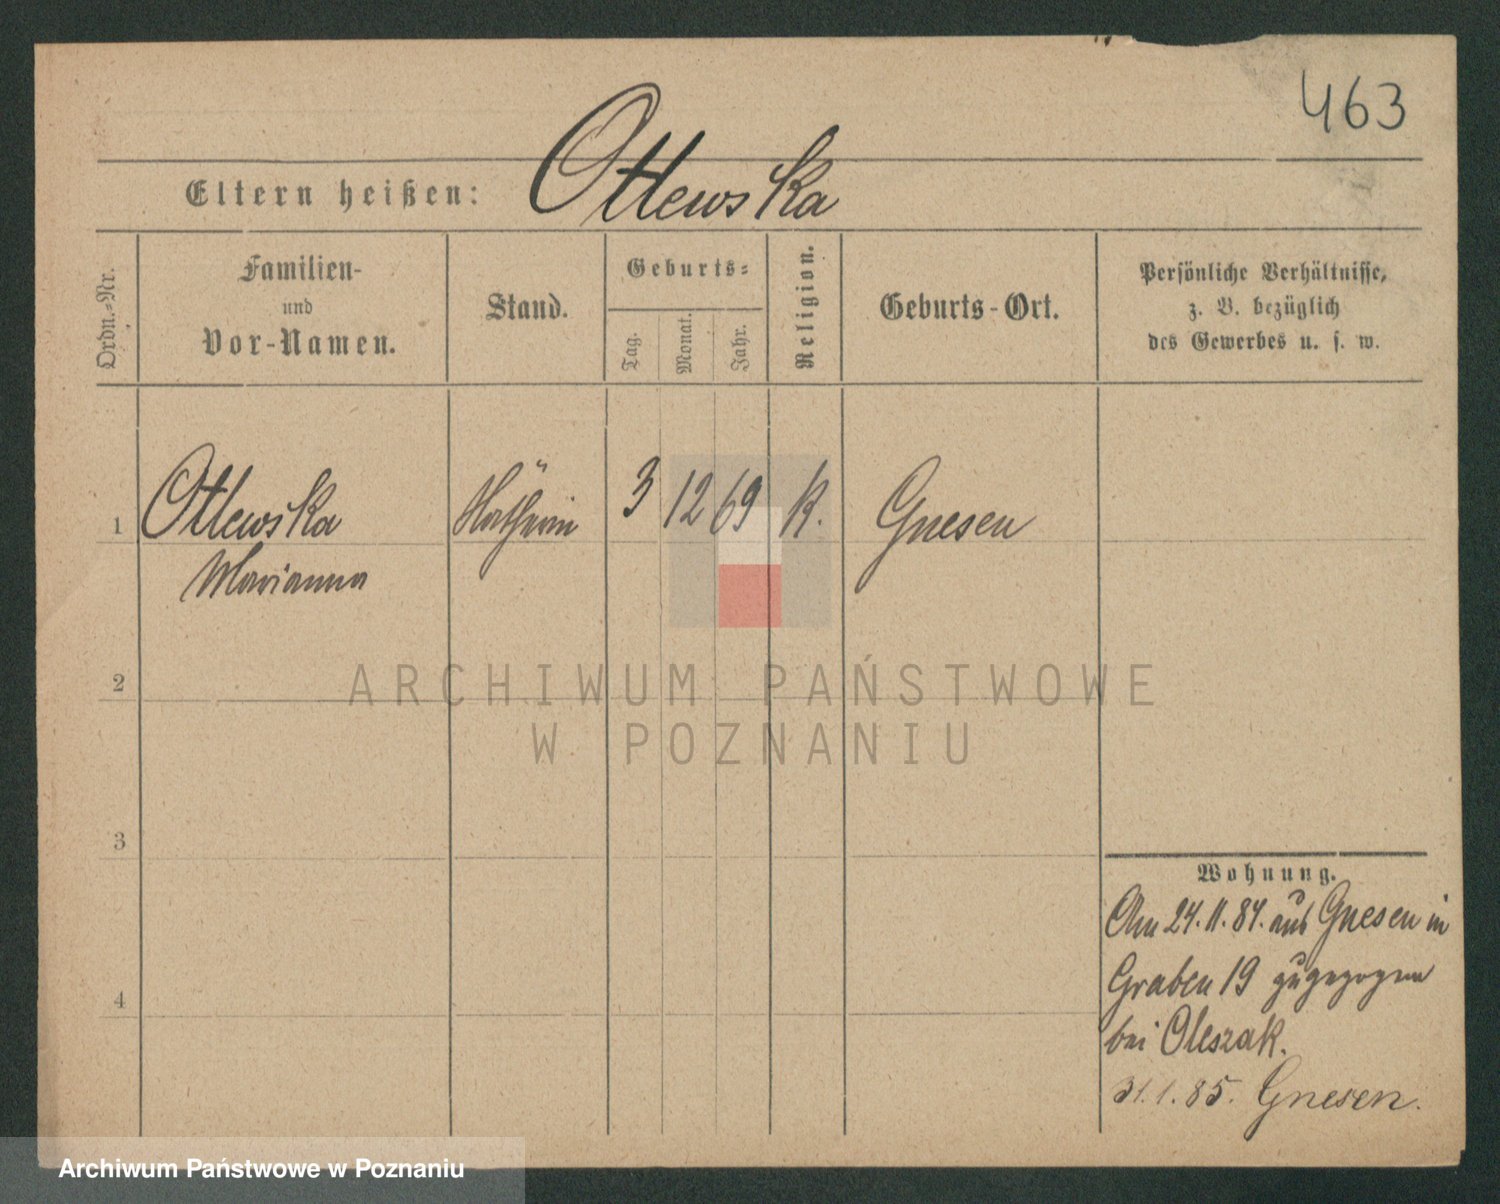 463
Ottewska
Eltern heißen:
Ordn.-Nr.
Familien-
und
Vor-Namen.
Stand.
Geburts-
Tag.
Monat.
Jahr.
Religion.
Geburts-Ort.
Persönliche Verhältnisse,
z. B. bezüglich
des Gewerbes u. s. w.
1 Ottewska 3 12 69 K. Gnesen
Marianna
2
3
4
Wohnung.
Am 24.11.84. aus Gnesen in
Graben 19 zugezogen
bei Oleszak.
31.1.85. Gnesen.
ARCHIWUM PAŃSTWOWE
W POZNANIU
Archiwum Państwowe w Poznaniu